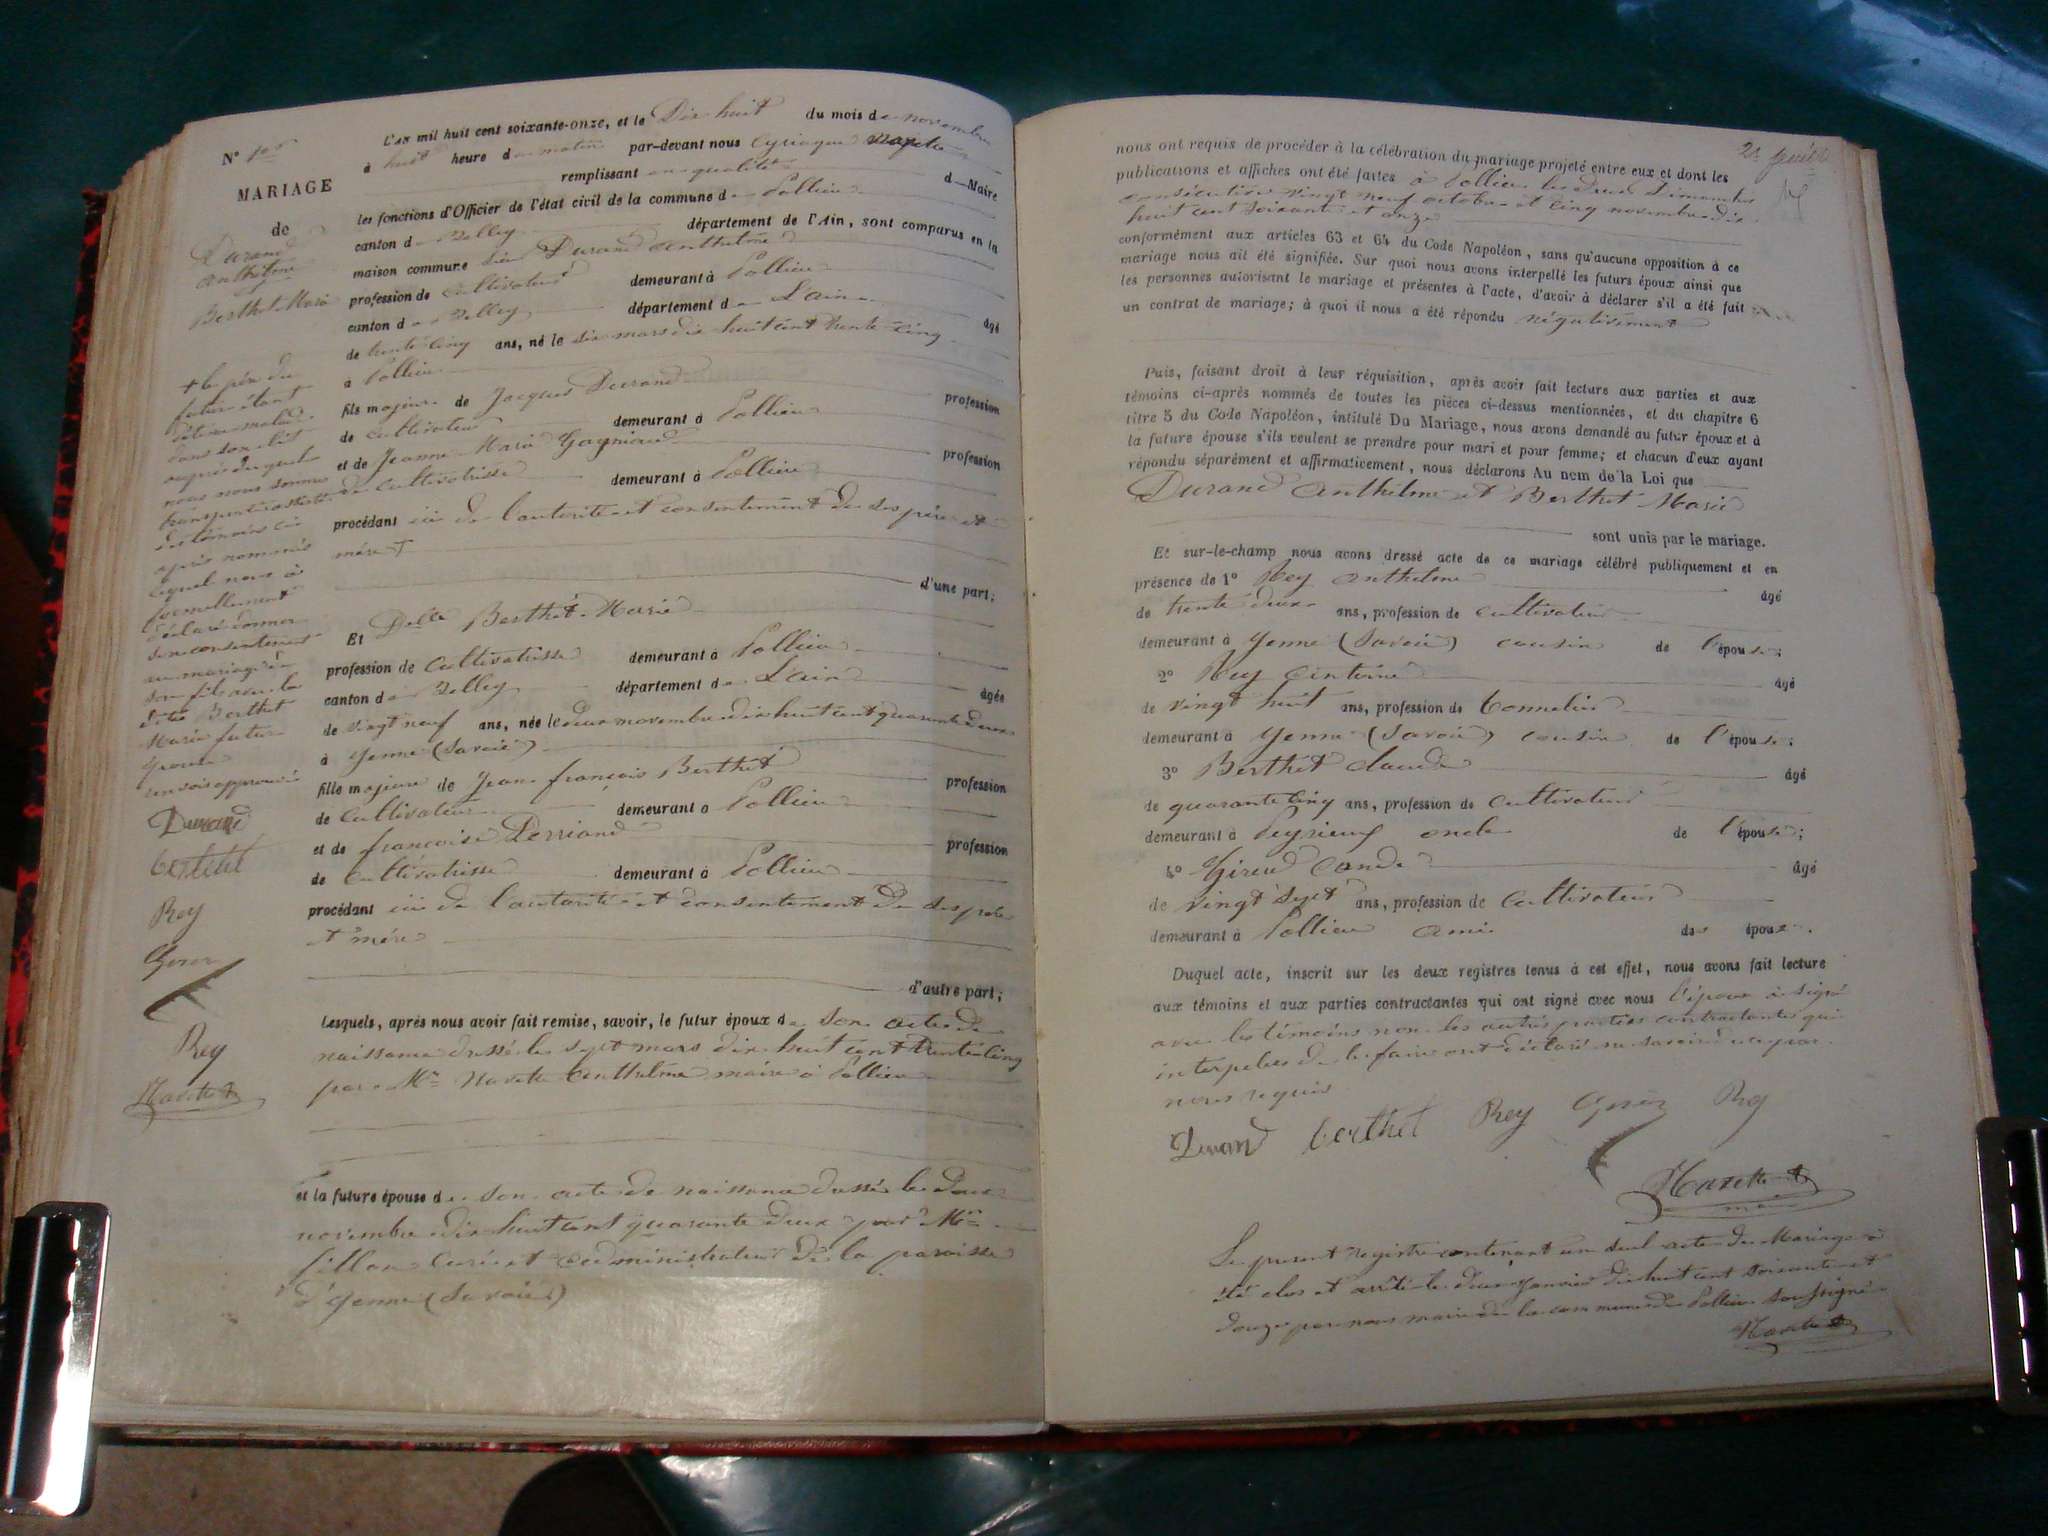 N° 1er
MARIAGE
de
Durand
Anthelme
et
Berthet Marie
+ le père du
futur étant
détenu malade
dans son lit
auprès duquel
nous nous sommes
transporté assisté
des témoins ci
après nommés
lequel nous à
formellement
déclaré donner
son consentement
au mariage de
son fils avec la
dite Berthet
Marie future
épouse
renvoi approuvé
Durand
berthet
Rey
Girer
Rey
Navette
L'an mil huit cent soixante-onze, et le Dix huit du mois de novembre
à huit heure du matin par-devant nous Cyriaque Navette
remplissant en qualité d—Maire
les fonctions d'Officier de l'état civil de la commune de Pollieu
canton de Belley département de l'Ain, sont comparus en la
maison commune Sieur Durand Anthelme
profession de cultivateur demeurant à Pollieu
canton de Belley département de L'ain âgé
de trente cinq ans, né le six mars dix huit cent trente cinq
à Pollieu
fils majeur de Jacques Durand profession
de cultivateur demeurant à Pollieu
et de Jeanne Marie Gagnioud profession
de cultivatrisse demeurant à Pollieu
procédant ici de l'autorité et consentement de ses père et
mère +
d'une part;
Et Delle Berthet Marie
profession de cultivatrisse demeurant à Pollieu
canton de Belley département de L'ain âgée
de vingt neuf ans, née le deux novembre dix huit cent quarante deux
à Yenne (Savoie)
fille majeure de Jean françois Berthet profession
de cultivateur demeurant à Pollieu
et de françoise Perriand profession
de cultivatrisse demeurant à Pollieu
procédant ici de l'autorité et consentement de ses père
et mère
d'autre part;
Lesquels, après nous avoir fait remise, savoir, le futur époux de son acte de
naissance dressé le sept mars dix huit cent trente cinq
par Mr Navette Anthelme maire à Pollieu
et la future épouse de son acte de naissance dressé le deux
novembre dix huit cent quarante deux par Mr
fillon curé et administrateur de la paroisse
d'Yenne (Savoie)
nous ont requis de procéder à la célébration du mariage projeté entre eux et dont les
publications et affiches ont été faites à Pollieu les deux Dimanches
consécutifs vingt neuf octobre et cinq novembre dix
huit cent soixante et onze
conformément aux articles 63 et 64 du Code Napoléon, sans qu'aucune opposition à ce
mariage nous ait été signifiée. Sur quoi nous avons interpellé les futurs époux ainsi que
les personnes autorisant le mariage et présentes à l'acte, d'avoir à déclarer s'il a été fait
un contrat de mariage; à quoi il nous a été répondu négativement
Puis, faisant droit à leur réquisition, après avoir fait lecture aux parties et aux
témoins ci-après nommés de toutes les pièces ci-dessus mentionnées, et du chapitre 6
titre 5 du Code Napoléon, intitulé Du Mariage, nous avons demandé au futur époux et à
la future épouse s'ils veulent se prendre pour mari et pour femme; et chacun d'eux ayant
répondu séparément et affirmativement, nous déclarons Au nom de la Loi que
Durand Anthelme et Berthet Marie
sont unis par le mariage.
Et sur-le-champ nous avons dressé acte de ce mariage célébré publiquement et en
présence de 1° Rey Anthelme âgé
de trente deux ans, profession de cultivateur
demeurant à Yenne (Savoie) cousin de l'épouse;
2° Rey Antoine âgé
de vingt huit ans, profession de tonnelier
demeurant à Yenne (Savoie) cousin de l'épouse;
3° Berthet Claude âgé
de quarante cinq ans, profession de cultivateur
demeurant à Peyrieux oncle de l'épouse;
4° Girer âgé
de vingt sept ans, profession de cultivateur
demeurant à Pollieu ami des époux.
Duquel acte, inscrit sur les deux registres tenus à cet effet, nous avons fait lecture
aux témoins et aux parties contractantes qui ont signé avec nous l'époux à signé
avec les témoins non les autres parties contractantes qui
interpelés de le faire ont déclaré ne savoir de ce par
nous requis
Durand berthet Rey Girer Rey
Navette
maire
Le present registre contenant un seul acte de Mariage à
été clos et arrêté le deux Janvier dix huit cent soixante et
douze par nous maire de la commune de Pollieu soussigné
Navette